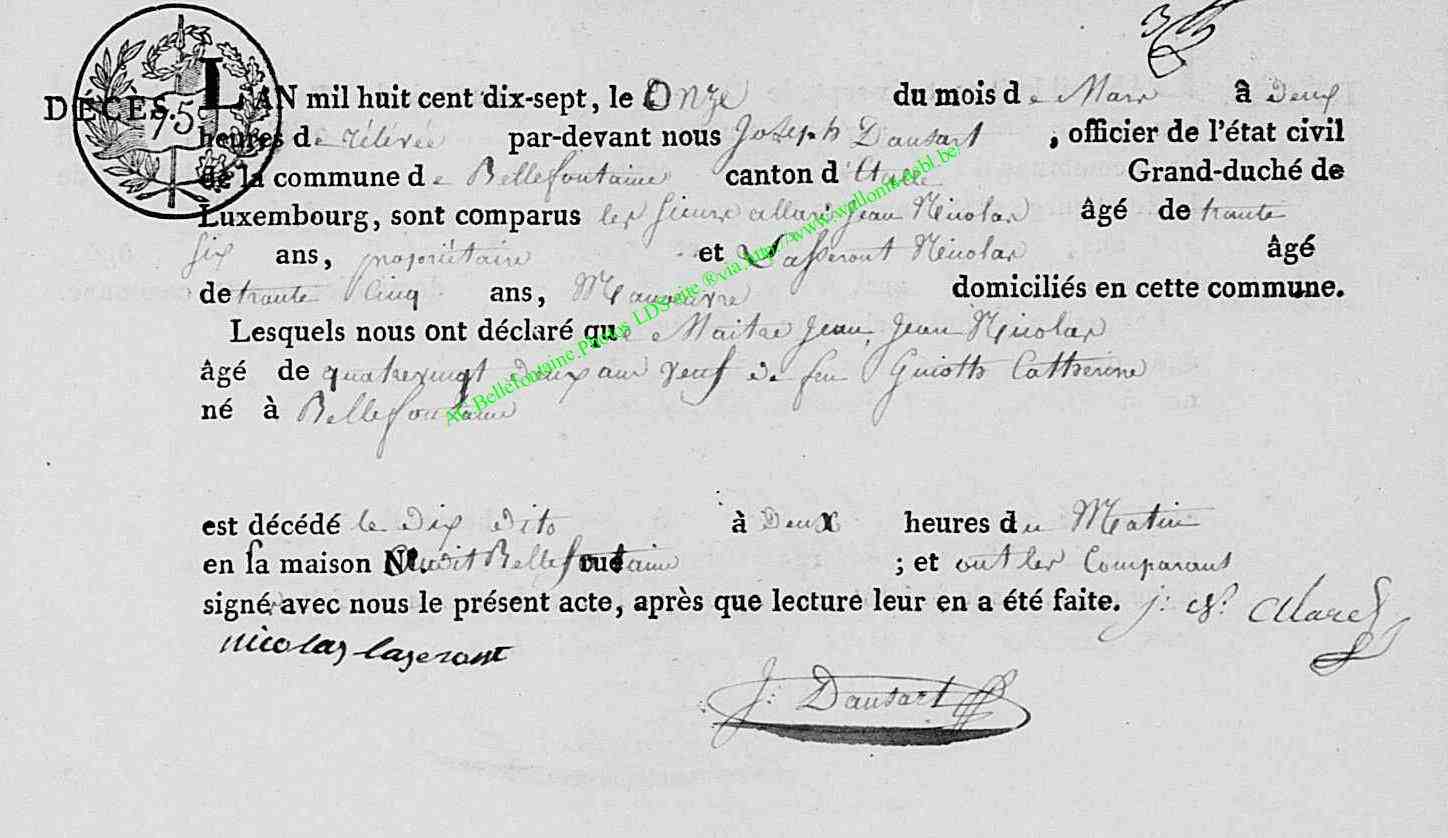 DÉCÈS.
75
L'AN mil huit cent dix-sept, le Onze du mois de Mars à deux
heures de rélévée par-devant nous Joseph Dausart, officier de l'état civil
de la commune de Bellefontaine canton d'Etalle Grand-duché de
Luxembourg, sont comparus les sieurs allard jean Nicolas âgé de trante
six ans, propriétaire et Lasseront Nicolas âgé
de trante cinq ans, Manoeuvre domiciliés en cette commune.
Lesquels nous ont déclaré que Maitre jean, jean Nicolas
âgé de quatrevingt deux ans veuf de feu Guioth Catherine
né à Bellefontaine
est décédé le dix dito à deux heures du Matin
en sa maison Bellefontaine ; et ont les Comparant
signé avec nous le présent acte, après que lecture leur en a été faite. j: N.
nicolas laseront
J: Dausart
AC Bellefontaine.Photos LDS-site ®via.http://www.wallonia.cabl.be/